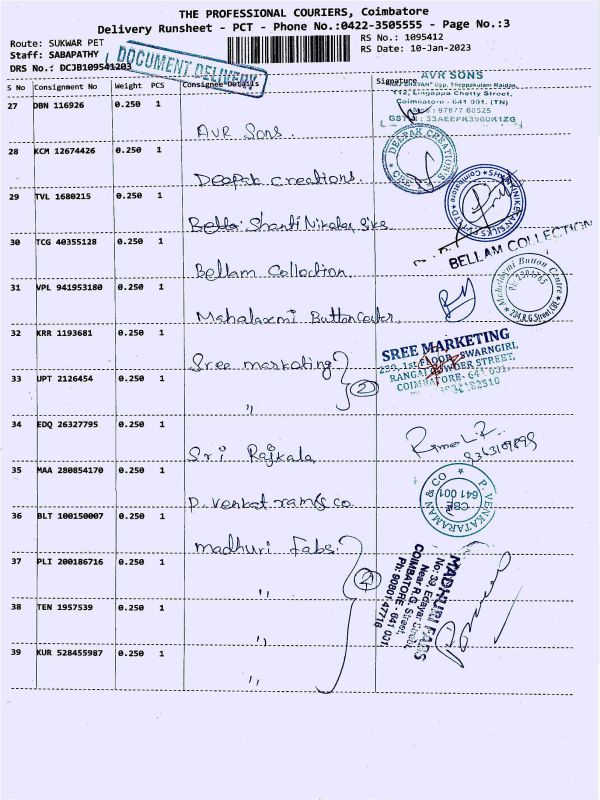 THE PROFESSIONAL COURIERS, Coimbatore
Delivery Runsheet - PCT - Phone No.:0422-3505555 - Page No.:3
Route: SUKWAR PET
RS No.: 1095412
Staff: SABAPATHY
RS Date: 10-Jan-2023
DRS No.: DCJB109541203
DOCUMENT DELIVERY
S No Consignment No Weight PCS Consignee Details Signature
AVR SONS
Opp. Theppakulam Maidan,
112, Lingappa Chetty Street,
Coimbatore - 641 001. (TN)
: 97877 60525
27 DBN 116926 0.250 1
AVR Sons
28 KCM 12674426 0.250 1
Deepak Creations.
DEEPAK CREATIONS
CBE
29 TVL 1680215 0.250 1
Shanti Niketan Silks
Coimbatore
30 TCG 40355128 0.250 1
Bellam Collection.
BELLAM COLLECTION
31 VPL 941953180 0.250 1
Mahalaxmi Button Center.
Mahalaxmi Button Centre
32 KRR 1193681 0.250 1
Sree marketing
SREE MARKETING
1st FLOOR, SWARNGIRI
RANGAI GOWDER STREET,
COIMBATORE- 641 001.
33 UPT 2126454 0.250 1
"
2
34 EDQ 26327795 0.250 1
Sri Rajkala
35 MAA 280854170 0.250 1
P. Venkatram & co
P. VENKATARAMAN & CO
CBE
641 001
36 BLT 100150007 0.250 1
madhuri Fabs.
MADHURI FABS
Near R.G. Street,
COIMBATORE - 641 001.
Ph: 90801 47716
37 PLI 200186716 0.250 1
"
38 TEN 1957539 0.250 1
"
39 KUR 528455987 0.250 1
"